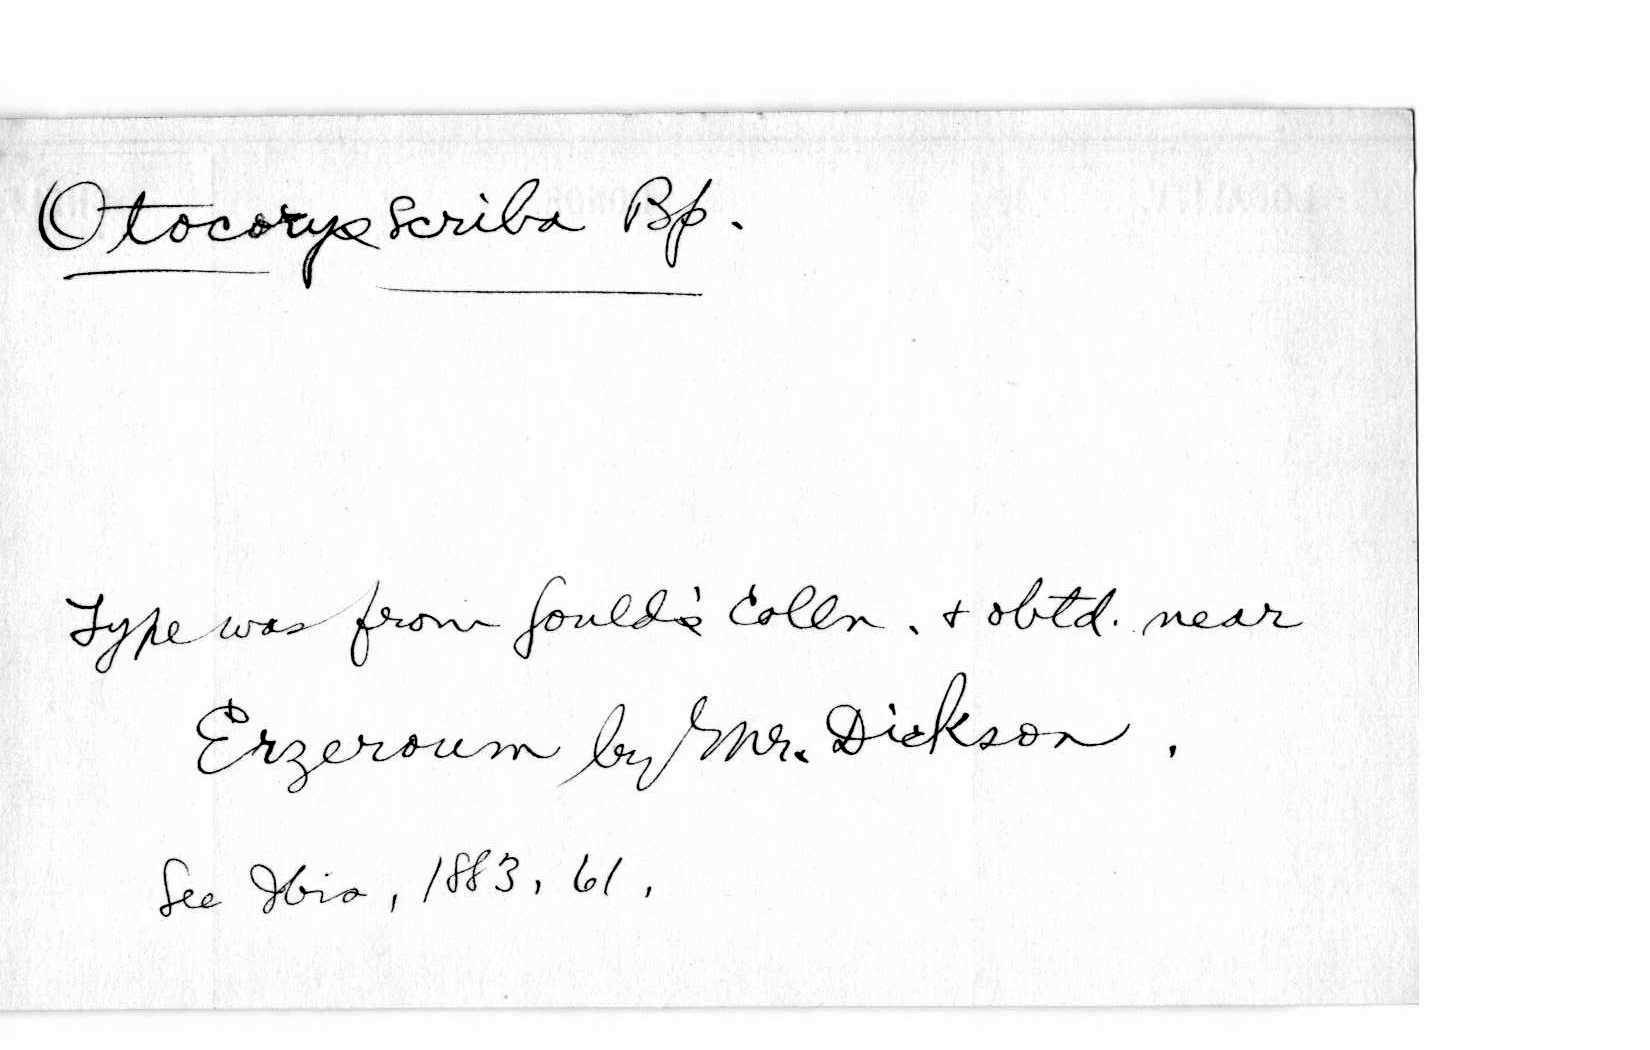 Otocorys scriba Bp.
Type was from Gould's Colln. & obtd. near
Erzeroum by Mr. Dickson.
See Ibis, 1883, 61.